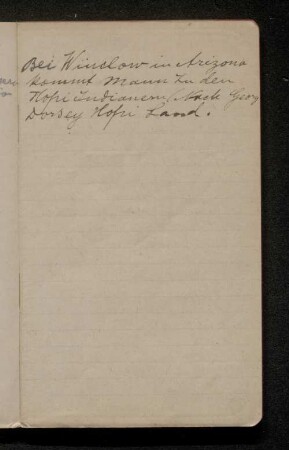 Bei Winslow in Arizona
kommt Mann zu den
Hopi Indianern (Nach Georg
Dorsey Hopi Land.